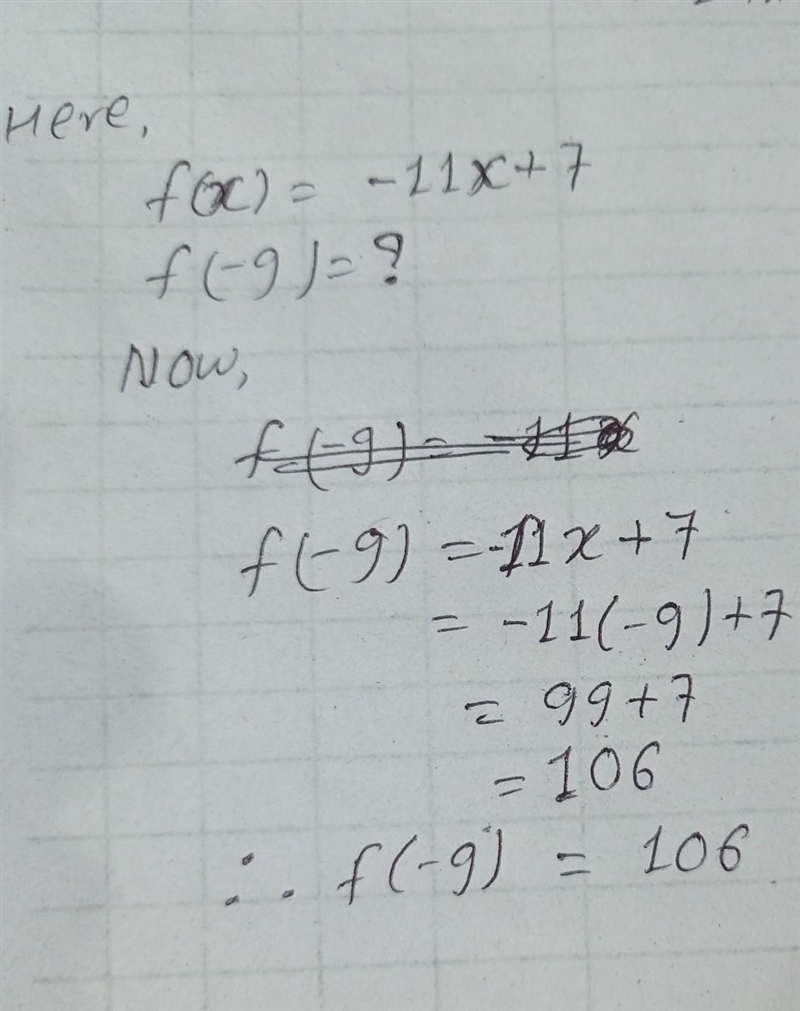 Here,
f(x) = -11x+7
f(-9)=?
Now,
f(-9) = -11x
f(-9) = -11x+7
= -11(-9)+7
= 99+7
= 106
∴ f(-9) = 106